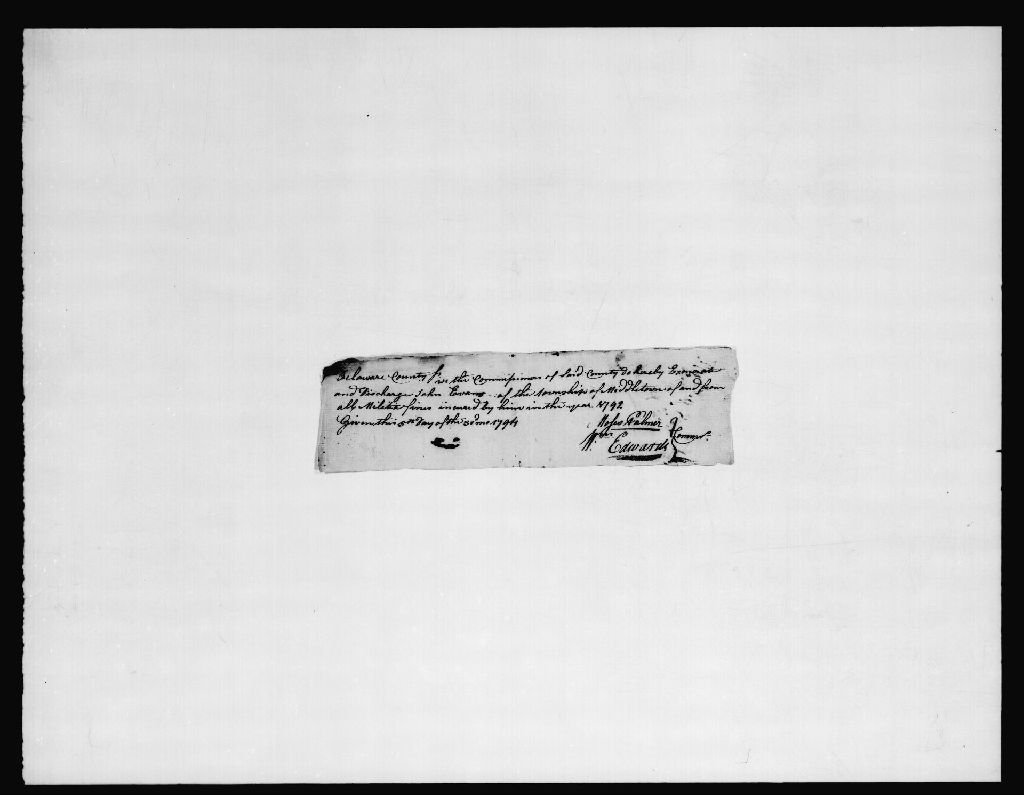 Delaware County Ss. We the Commissioners of said County do hereby Exonerate
and Discharge John Evans of the township of Middletown of and from
all Militia fines incured by him in the year 1792
Given this 5th Day of the 3d mo 1794
Moses Palmer
Wm Edwards
Commrs.